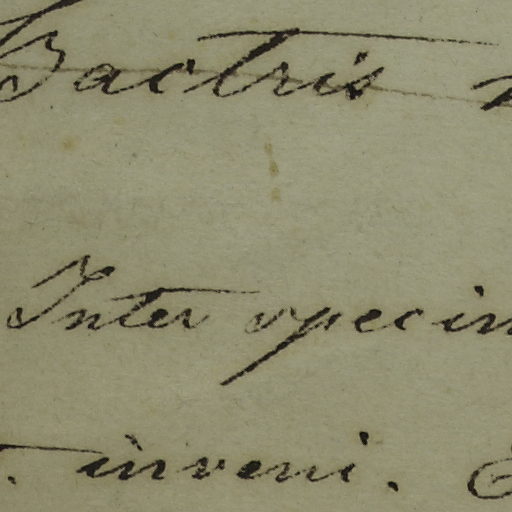 Bactris
Inter specim
inveni.